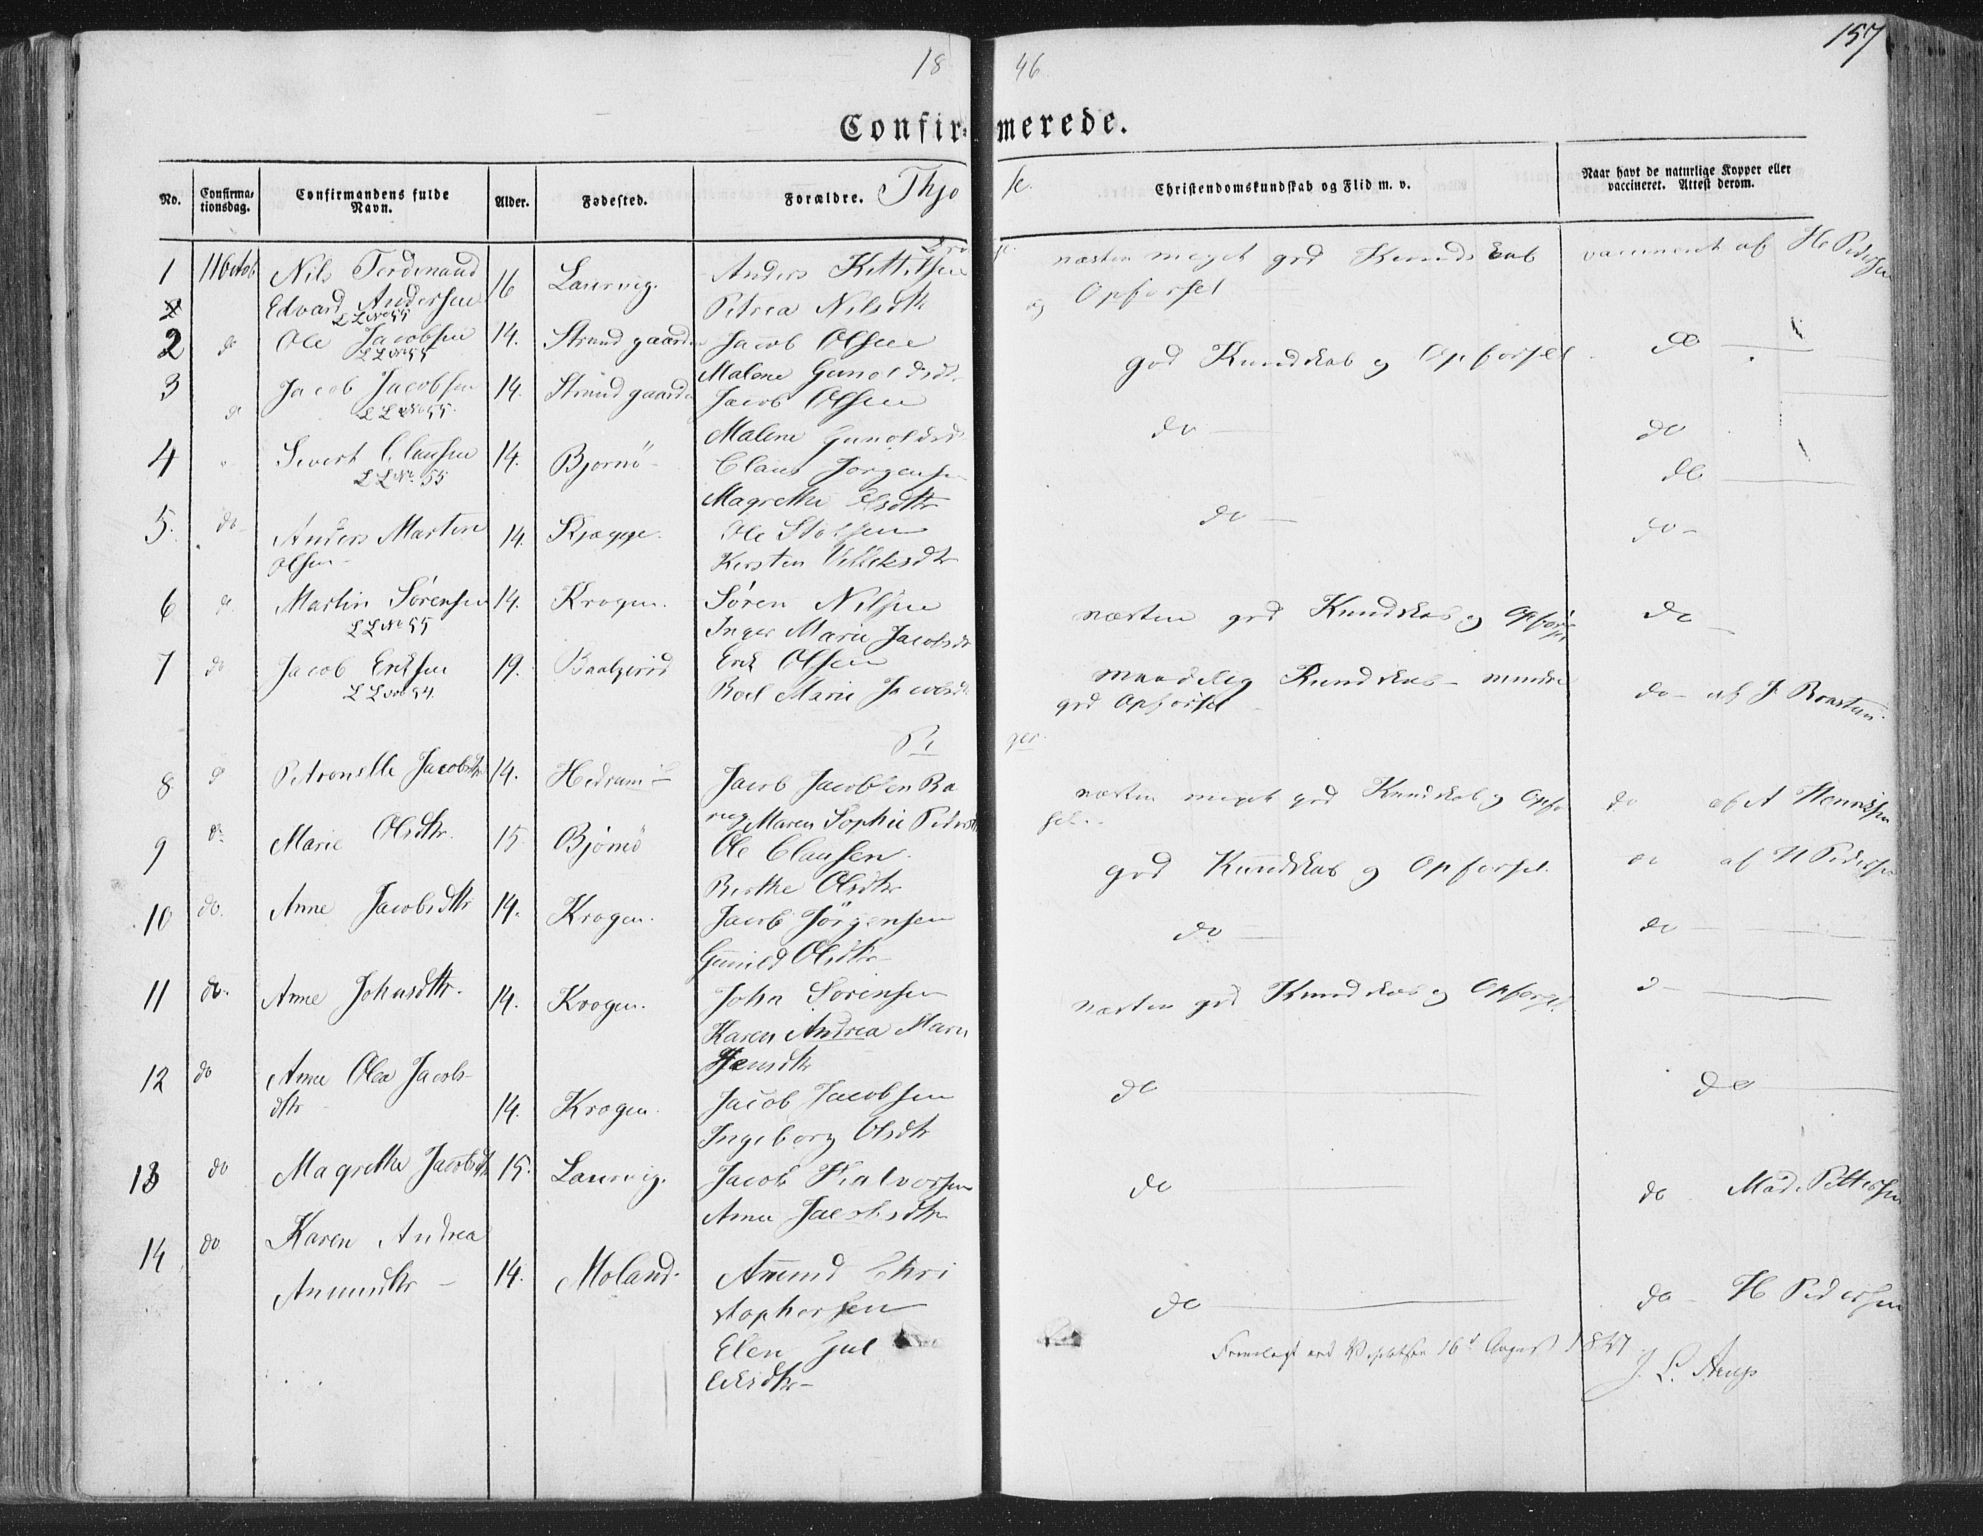 157
18 46
Confir= merede.
Thjo
No.
Confirma=
tionsdag.
Confirmandens fulde
Navn.
Alder.
Fødested.
Forældre.
Christendomskundskab og Flid m. v.
Naar havt de naturlige Kopper eller
vaccineret. Attest derom.
1 11 Octob Nils Ferdinand 16 Laurvig. Anders Kittilsen næsten meget god Kundskab vaccineret af H Pedersen
Edvard Andersen Petrea Nilsdtr og Opførsel
L L No 55
2 do Ole Jacobsen 14. Strandgaarden Jacob Olsen god Kundskab og Opførsel do
L L No 55 Malene Gunoldsdtr
3 do Jacob Jacobsen 14. Strandgaarden Jacob Olsen do do
L L No 55. Malene Gunoldsd
4 Sivert Clausen 14. Bjørnø Claus Jørgensen do
L L No 55 Magrethe Olsdtr
5. do Anders Martin 14. Skjægge. Ole do do
Olsen Kirsten
6 do Martin Sørensen 14. Krogen. Søren Nilsen næsten god Kundskab og Opførsel do
L L No 55 Inger Marie Jacobsdtr
7 do Jacob Eriksen 19. Erik Olsen maadelig Kundskab mindre do af J
L L No 54. Marie Jacobsdtr god Opførsel
Pi ger.
8 do Petronelle Jacobsdtr 14. Jacob Jacobsen næsten meget god Kundskab og Opfø do af A Henriksen
Maren Sophie Pedersdtr sel.
9 do Marie Olsdtr. 15 Bjørnø Ole Clausen god Kundskab og Opførsel. do af H Pedersen
Birthe Olsdtr
10 do. Anne Jacobsdtr 14. Krogen. Jacob Jørgensen do do
Gunild Olsdtr
11 do. Anne Johnsdtr. 14. Krogen. John Sørensen næsten god Kundskab og Opførsel
Karen Andrea Marie
Hansdtr
12 do Anne Olea Jacobs-
dtr 14. Krogen. Jacob Jacobsen do do
Ingeborg Olsdtr
13 do Magrethe Jacobsdtr 15. Laurvig. Jacob Halvorsen do do Mad. Pettersen
Anne Jacobsdtr
14 do Karen Andrea
14. Moland. Amund Chri do do H Pedersen
stophersen
Elen Jul
dtr
Fremlagt ved Visitatsen 16d August 1847
J. L. Arup